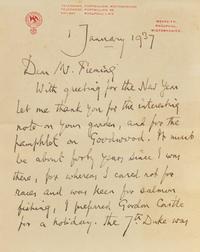 1 January 1937
Dear Mr. Fleming
With greeting for the New Year
let me thank you for the interesting
note on your garden, and for the
pamphlet on Goodwood. It must
be about forty years since I was
there, for whereas I cared not for
races and was keen for salmon
fishing, I preferred Gordon Castle
for a holiday. The 7th Duke was